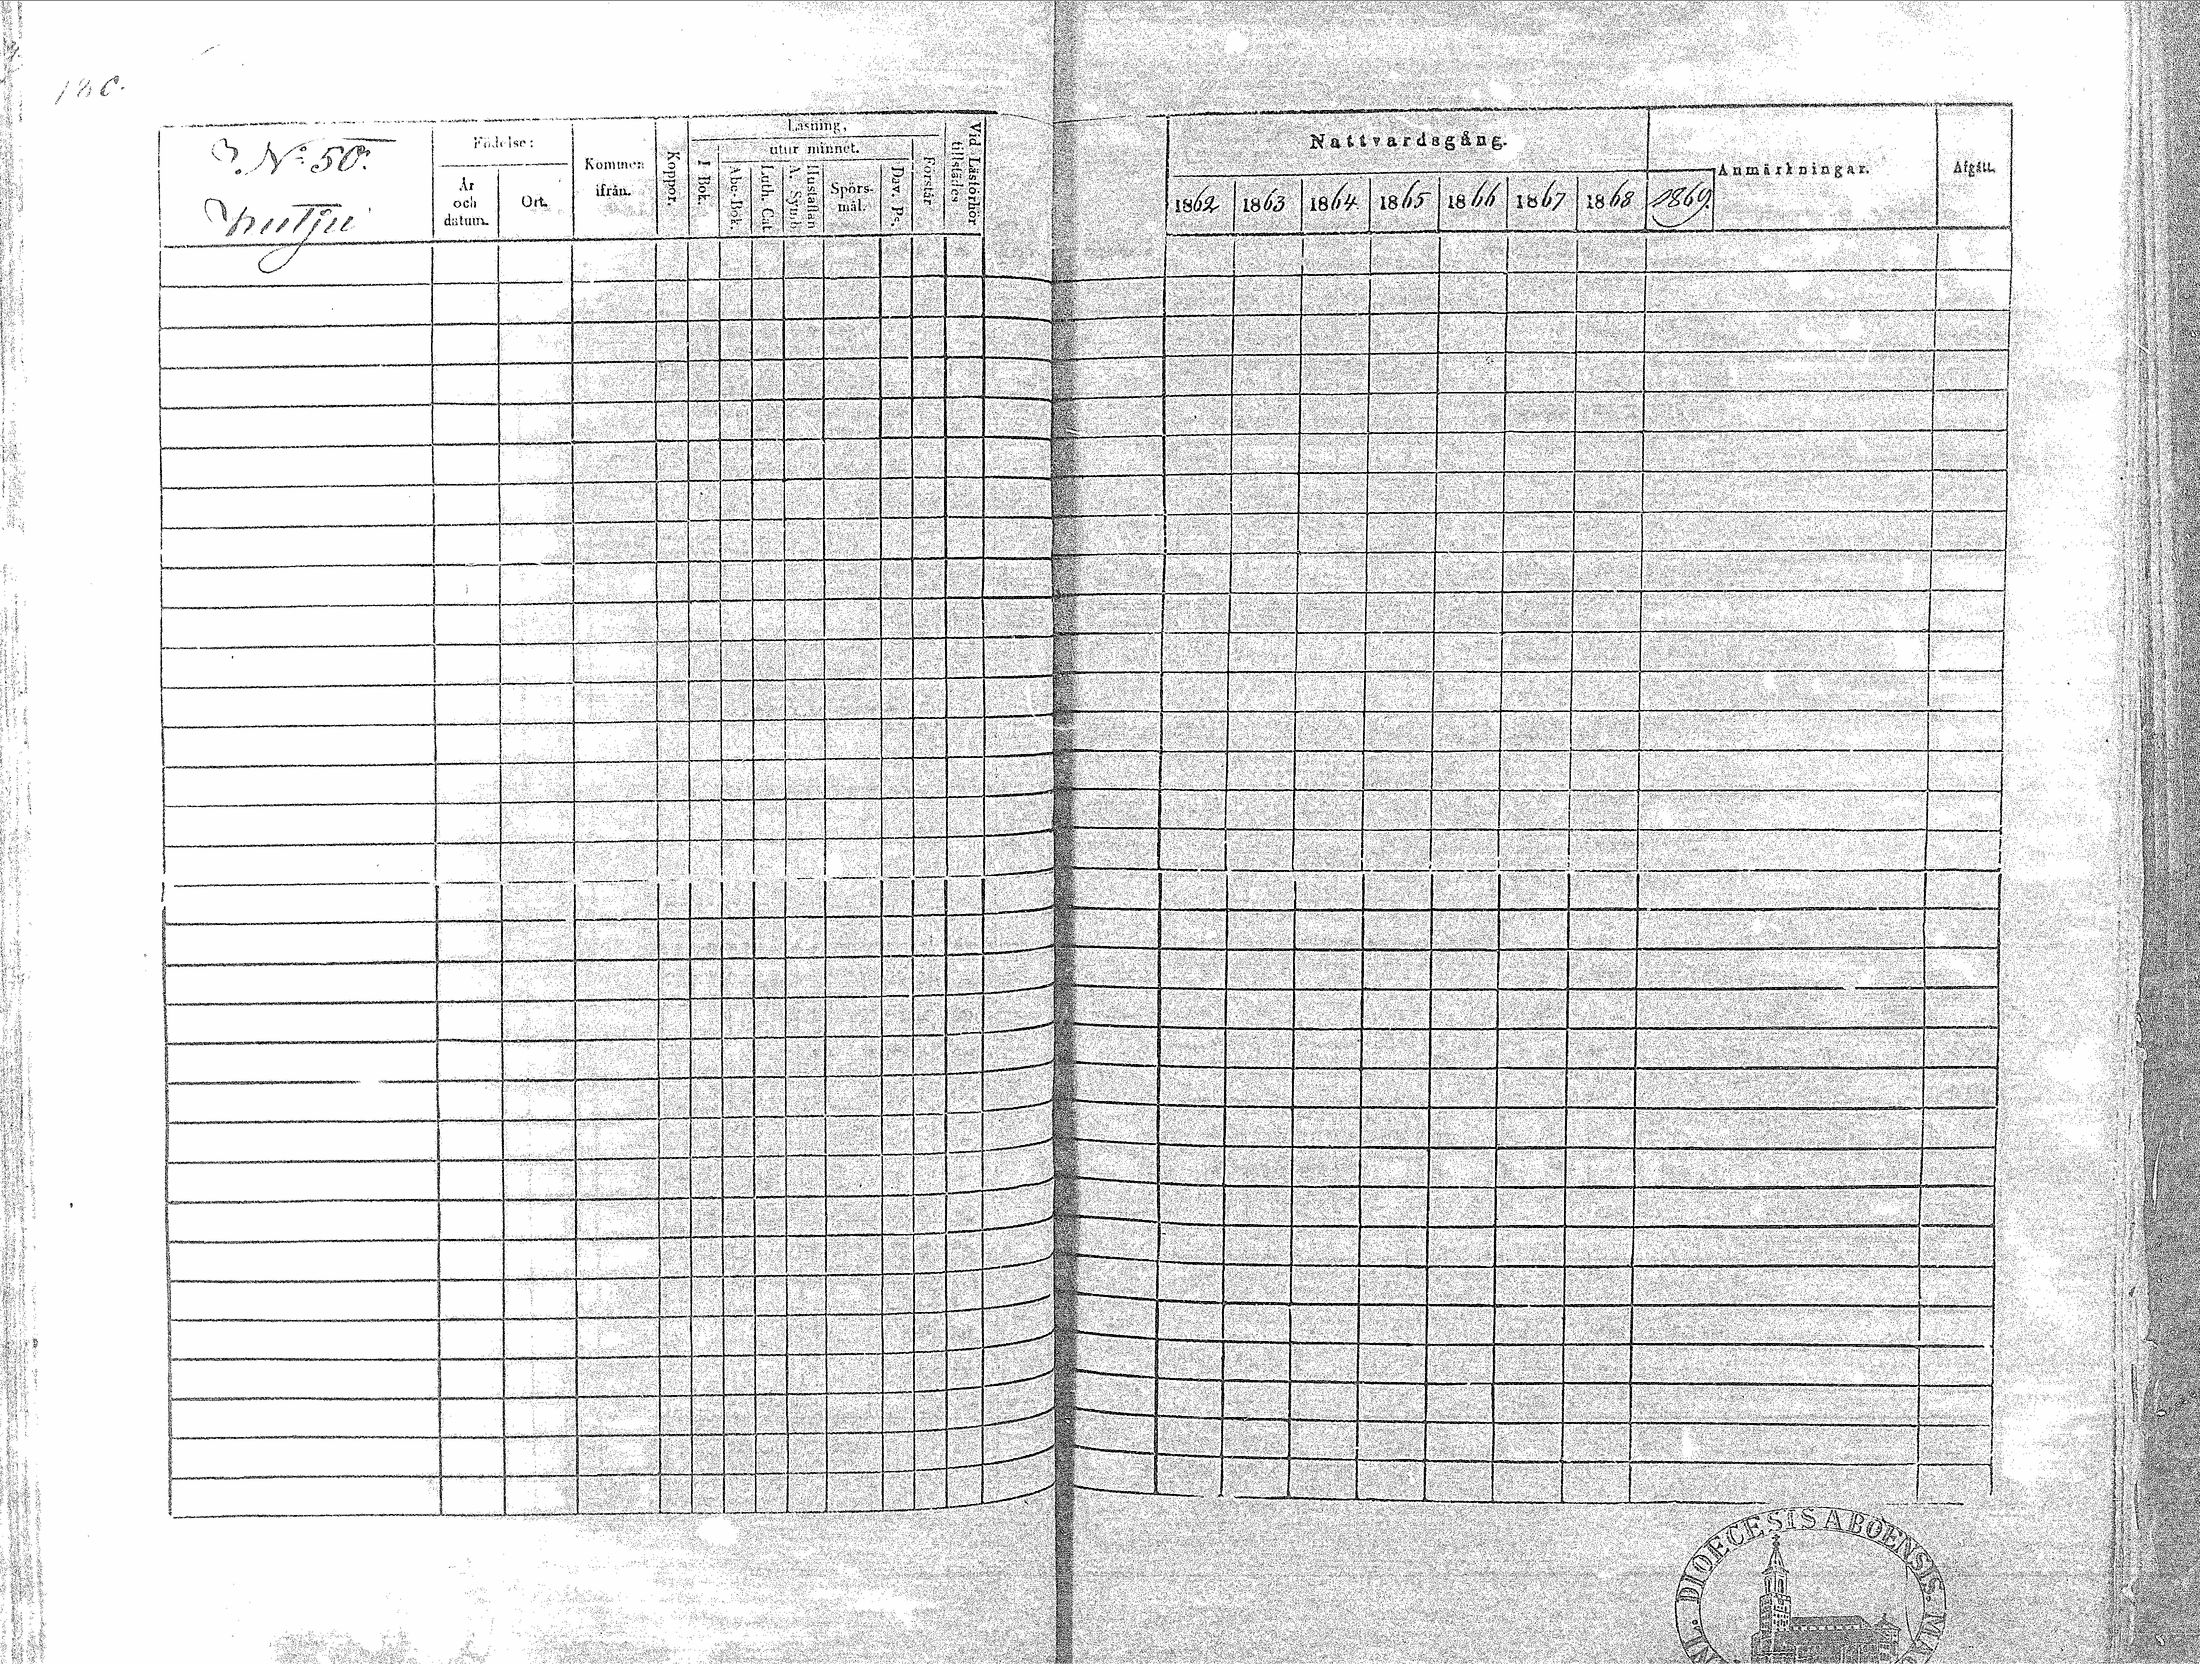 186.
No 50.
Födelse:
År och datum.
Ort.
Kommen ifrån.
Koppor.
Läsning,
utur minnet.
I Bok.
Abc-Bok.
Luth. Cat
Hustaflan A. Symb.
Spörs-mål.
Dav. Ps.
Förstår
Vid Läsförhör tillstädes
Nattvardsgång.
1862 1863 1864 1865 1866 1867 1868 1869.
Anmärkningar.
Afgått.
DIOECESIS ABOENSIS.